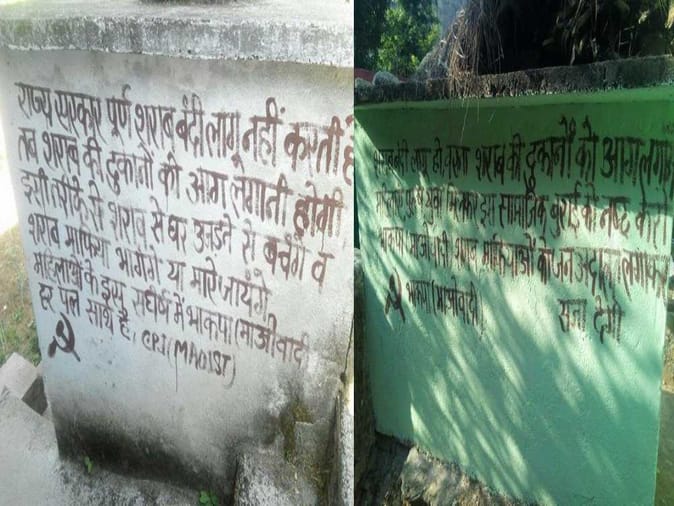 राज्य सरकार पूर्ण शराब बंदी लागू नहीं करती है
तब शराब की दुकानों को आग लगानी होगी
इसी तरीके से शराब से घर उजड़ने से बचेंगे व
शराब माफिया भागेंगे या मारे जायेंगे
महिलाओं के इस संघर्ष में भाकपा (माओवादी)
हर पल साथ है, CPI (MAOIST)
शराब की दुकानों को आग लगा
युवा मिलकर इस सामाजिक बुराई को नष्ट करो
भाकपा माओवादी शराब माफियाओं को जन अदालत लगाकर
भाकपा (माओवादी) सजा देगी